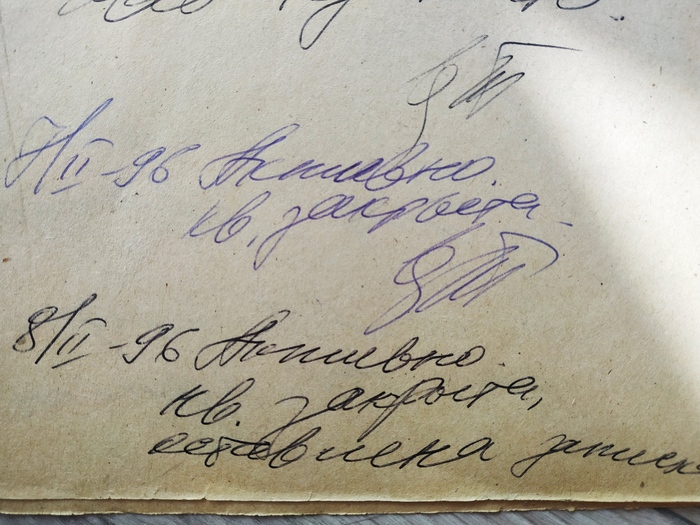 7/II-96 Активно.
кв. закрыта
8/II-96 Активно.
кв. закрыта,
оставлена записк